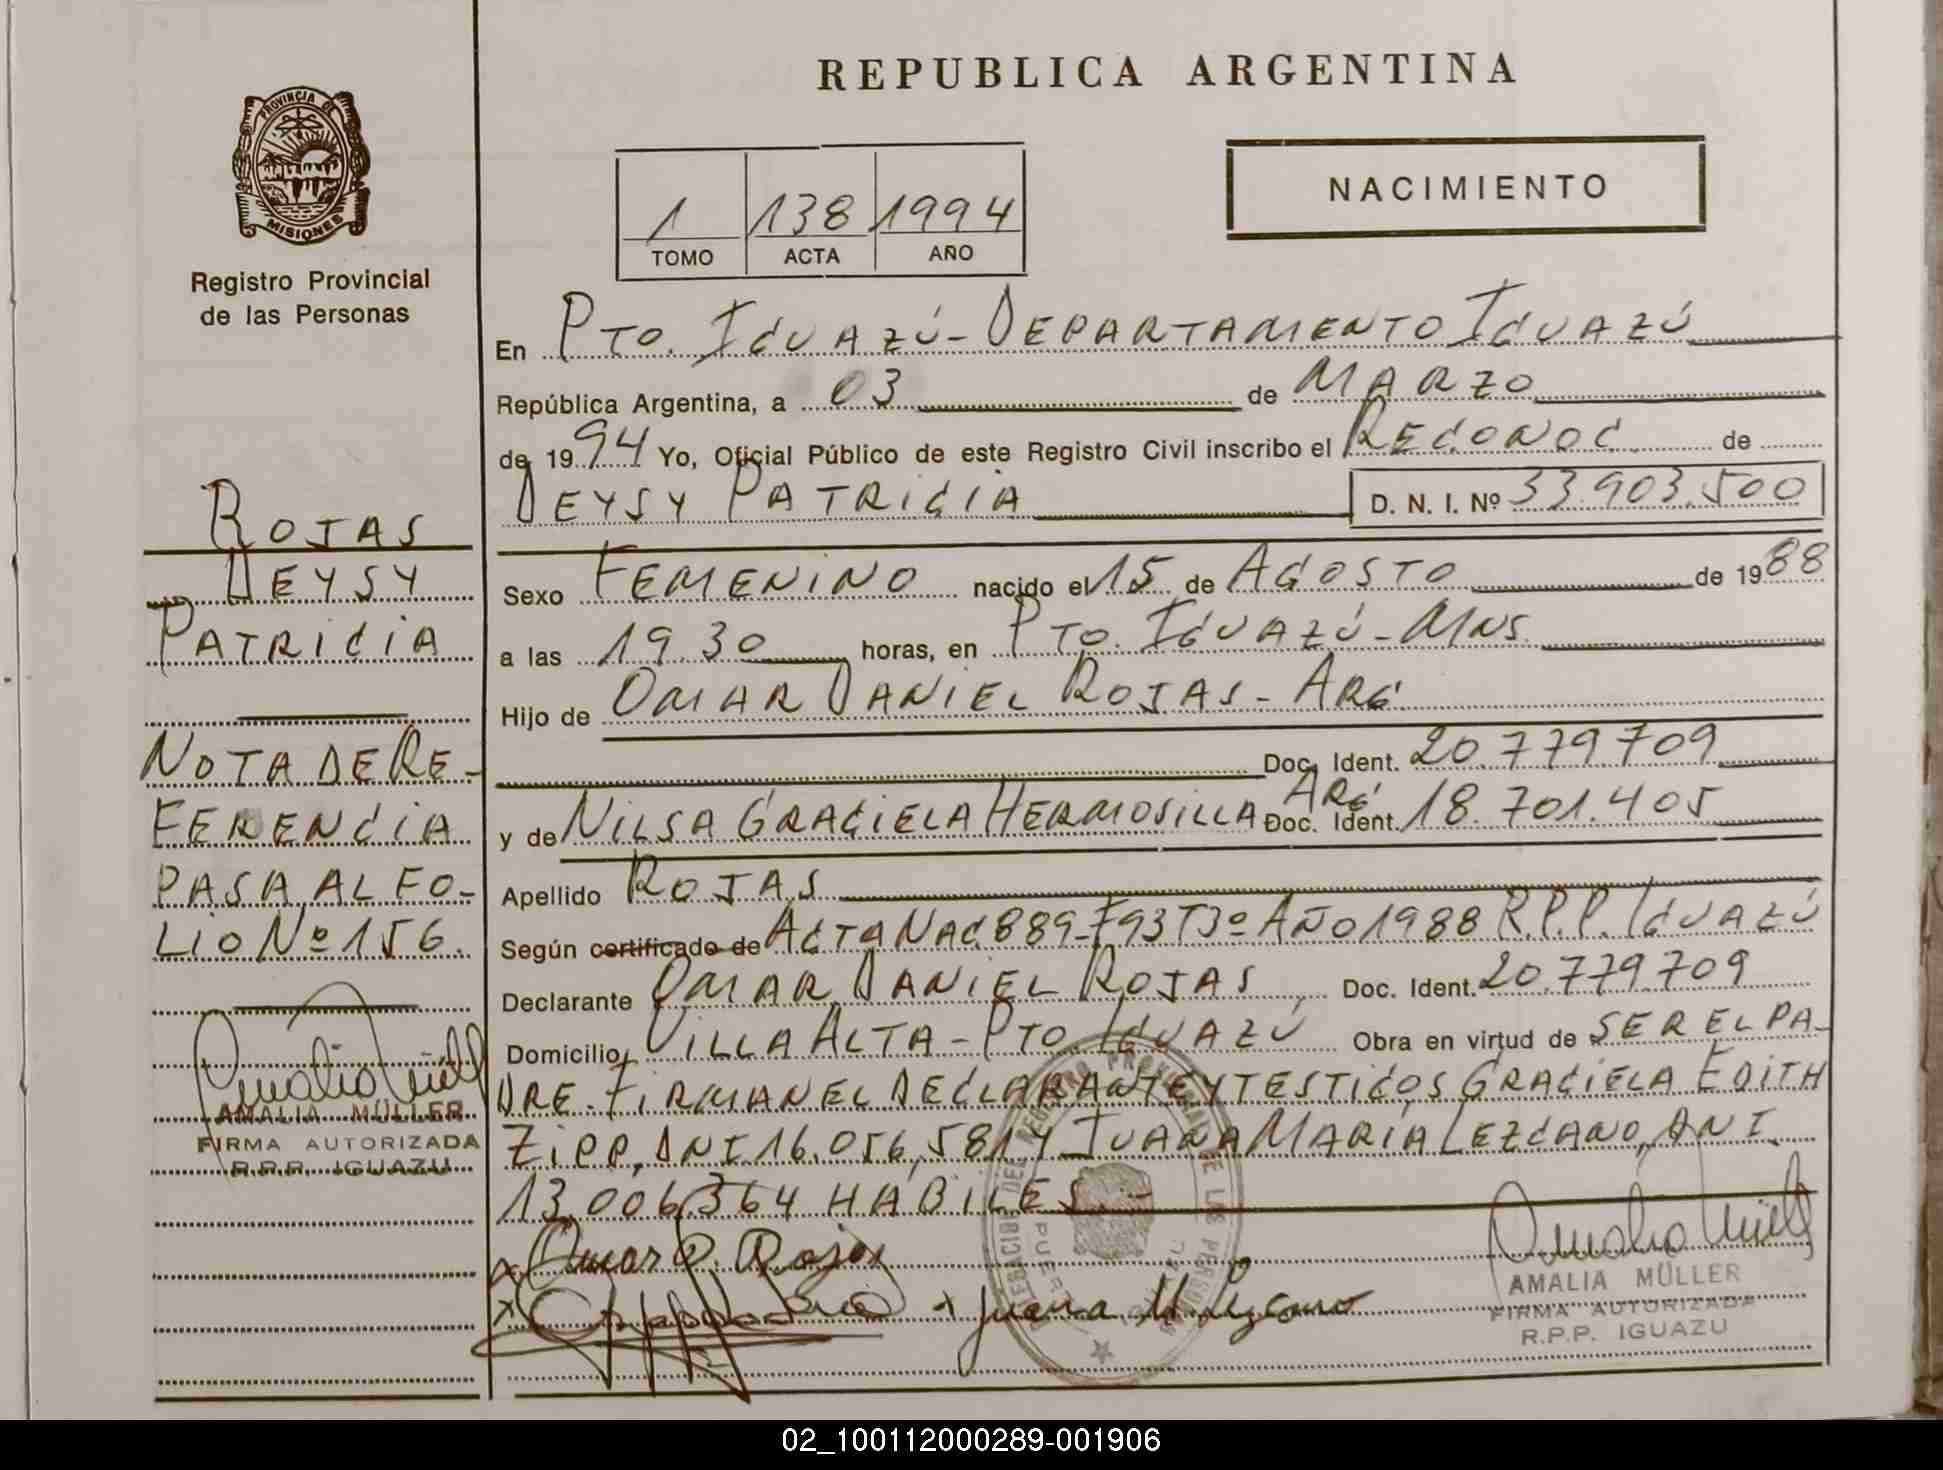 REPUBLICA ARGENTINA
PROVINCIA DE
MISIONES
Registro Provincial
de las Personas
1 138 1994
TOMO ACTA AÑO
NACIMIENTO
En PTO. IGUAZÚ - DEPARTAMENTO IGUAZÚ
República Argentina, a 03 de MARZO
de 1994 Yo, Oficial Público de este Registro Civil inscribo el RECONOC de
DEYSY PATRICIA D. N. I. Nº 33.903.500
Sexo FEMENINO nacido el 15 de AGOSTO de 1988
a las 19.30 horas, en PTO. IGUAZÚ - MNS.
Hijo de OMAR DANIEL ROJAS - ARG.
Doc. Ident. 20.779.709
y de NILSA GRACIELA HERMOSILLA ARG. Doc. Ident. 18.701.405
Apellido ROJAS
Según certificado de ACTA NAC. 889 - F93 T3º AÑO 1988 R.P.P. IGUAZÚ
Declarante OMAR DANIEL ROJAS, Doc. Ident. 20.779.709
Domicilio VILLA ALTA - PTO. IGUAZÚ Obra en virtud de SER EL PA-
DRE. FIRMAN EL DECLARANTE Y TESTIGOS GRACIELA EDITH
ZIPP, DNI 16.056.581 Y JUANA MARIA LEZCANO, DNI.
13.006.364 HABILES. -
Omar D. Rojas
Juana M. Lezcano
AMALIA MÜLLER
FIRMA AUTORIZADA
R.P.P. IGUAZU
ROJAS
DEYSY
PATRICIA
NOTA DE RE-
FERENCIA
PASA AL FO-
LIO Nº 156.
AMALIA MÜLLER
FIRMA AUTORIZADA
R.P.P. IGUAZU
02_100112000289-001906